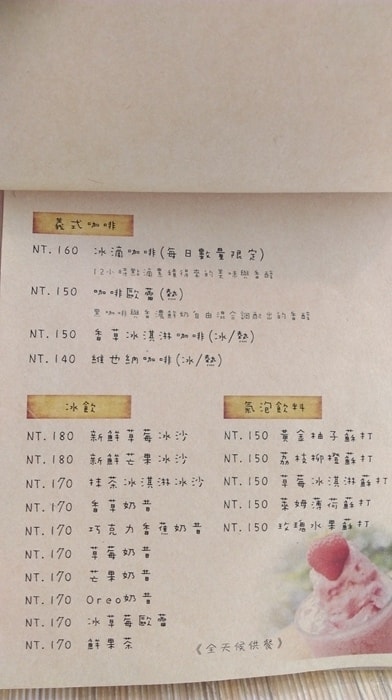 義式咖啡
NT.160 冰滴咖啡(每日數量限定)
12小時點滴累積得來的美味與香醇
NT.150 咖啡歐蕾(熱)
黑咖啡與香濃鮮奶自由混合調配出的香醇
NT.150 香草冰淇淋咖啡(冰/熱)
NT.140 維也納咖啡(冰/熱)
冰飲
NT.180 新鮮草莓冰沙
NT.180 新鮮芒果冰沙
NT.170 抹茶冰淇淋冰沙
NT.170 香草奶昔
NT.170 巧克力香蕉奶昔
NT.170 草莓奶昔
NT.170 芒果奶昔
NT.170 Oreo奶昔
NT.170 冰草莓歐蕾
NT.170 鮮果茶
氣泡飲料
NT.150 黃金柚子蘇打
NT.150 荔枝柳橙蘇打
NT.150 草莓冰淇淋蘇打
NT.150 萊姆薄荷蘇打
NT.150 玫瑰水果蘇打
《全天候供餐》